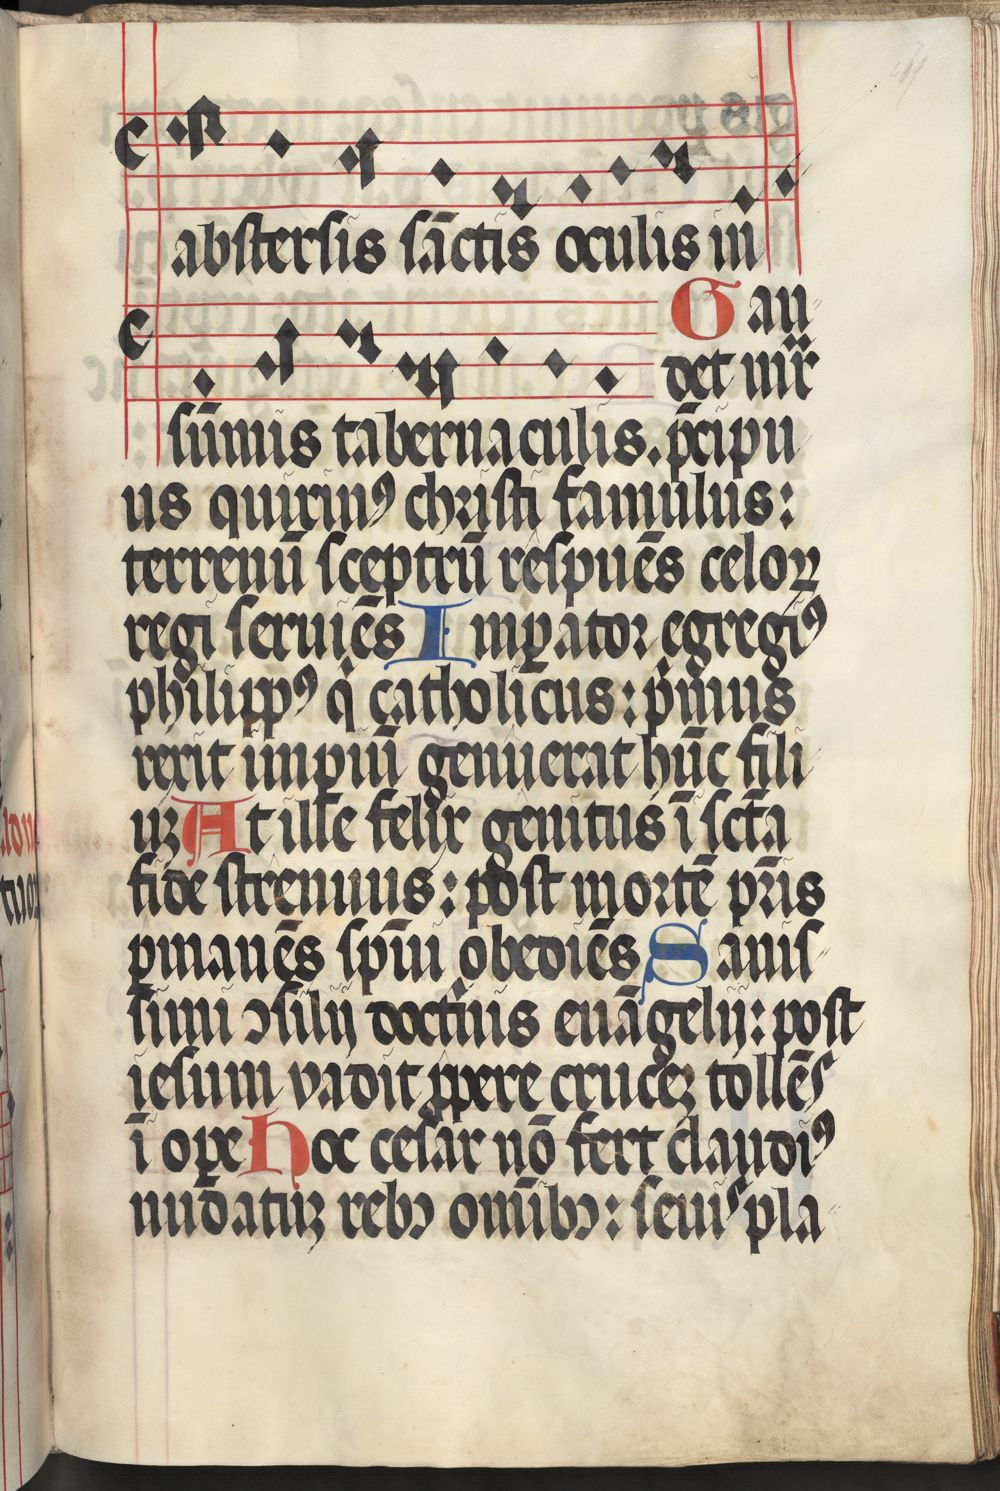 abstersis sāctis oculis in
Gau
det nūr
sūmis tabernaculis. p̄cipu
us quirinꝰ christi famulus:
terrenū sceptrū respuēs celoꝝ
regi seruiēs Imꝑator egregiꝰ
philippꝰ q̇ catholicus: pͥmus
rexit impiū genuerat hūc fili
uꝫ At ille felix genitus ī sct̄a
fide strenuus: post mortē pr̄is
ꝑmanēs sp̄ui obediēs Sanis
simi ꝯsilij doctͥnis euāgelij: post
iesum vadit ꝓpere cruceꝫ tollēs
ī oꝑe Hoc cesar nō fert claudiꝰ
nudatuꝫ rebꝰ omībꝰ: seuis pla